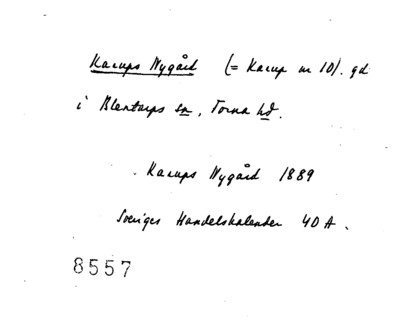 Karups Nygård (= Karup nr 10). gd
i Blentarps sn, Torna hd.
Karups Nygård 1889
Sveriges Handelskalender 40 A.
8557